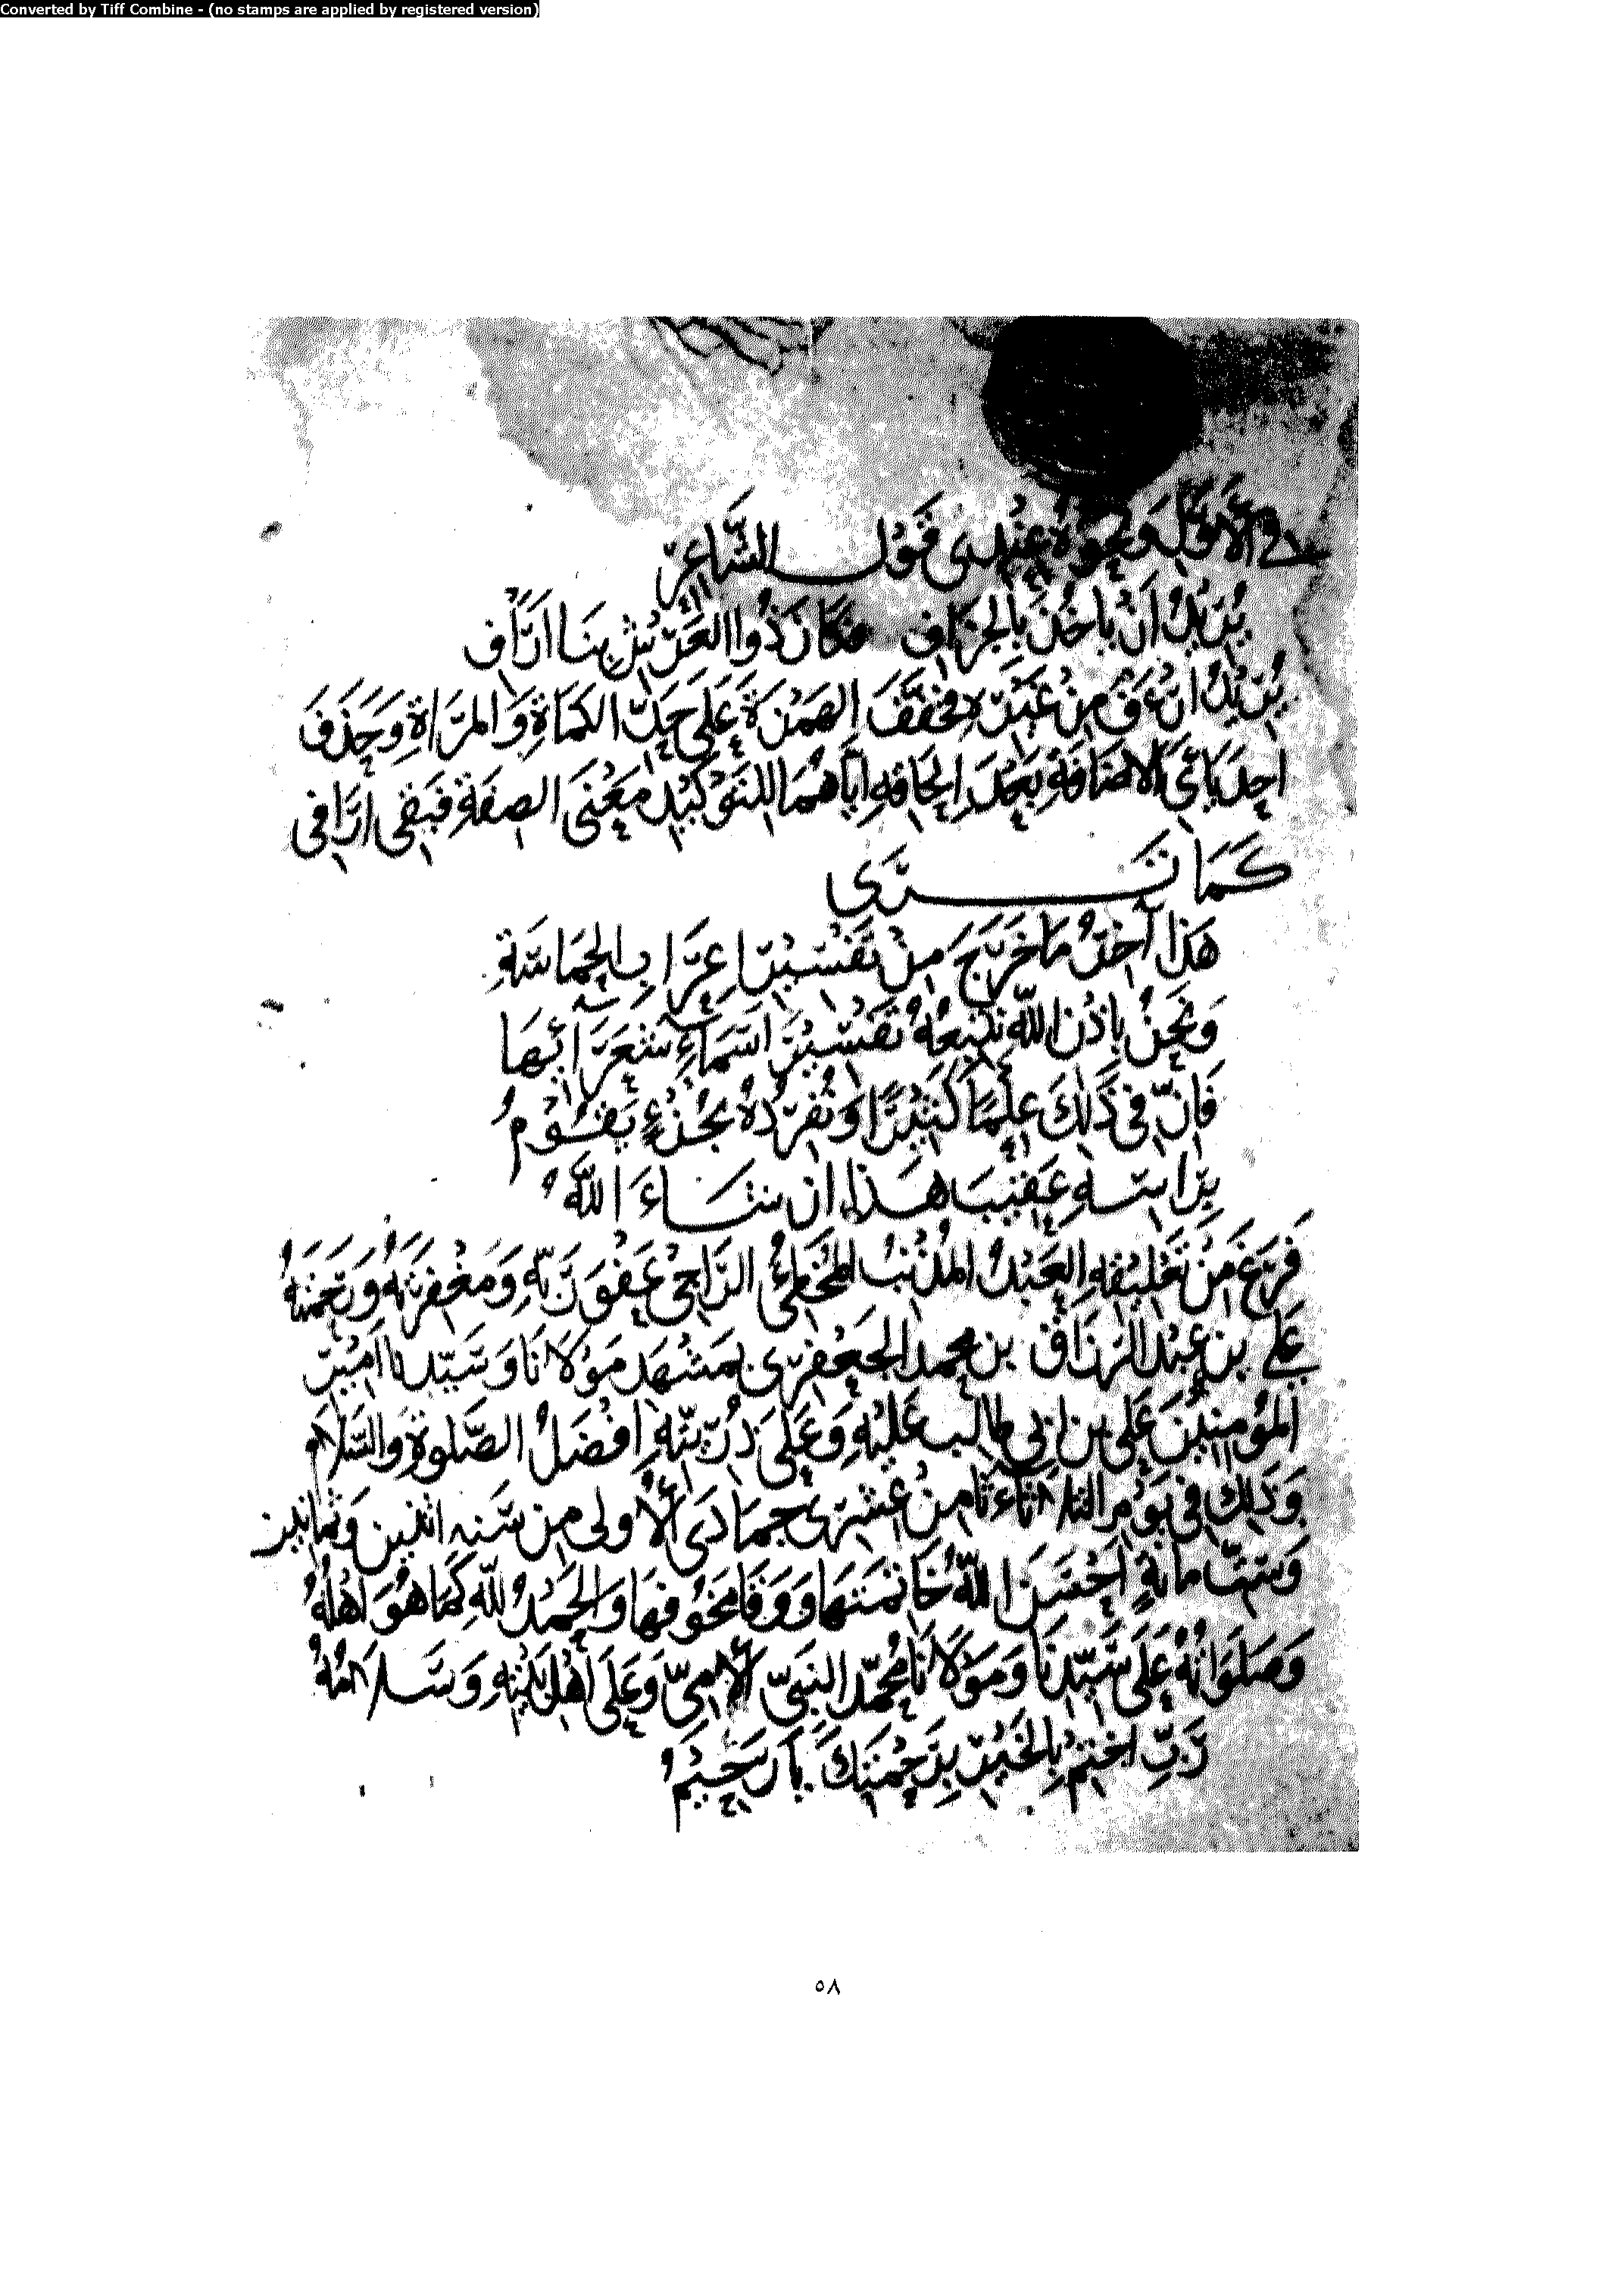 Converted by Tiff Combine - (no stamps are applied by registered version)
ونحوه عندي قول الشاعر
يُريدُ أنْ يأخُذَ بالجزاف فكانَ ذُوا العَرْشِ بِنَا أرَّاف
يُريدُ ارءف مِنْ غَيْرِه فخفّفَ الهمزة عَلى حَدّ الكماةِ وَالمرَاةِ وَحَذفَ
احدَ يائي الاضافةِ بعد إلحاقهِ اياهُما للتوكيدِ مَعْنَى الصفةِ فبقى ارّافى
كَمَا تَرَى
هَذا آخرُ ما خَرَجَ مِنْ تَفْسِيرِ اعرَابِ الحمَاسَةِ
وَنحنُ باذن اللّه نتبعُهُ تَفْسِيرَ اسْمَاءِ شعَرَائِهَا
فَانّ في ذَلكَ عِلمًا كَثِيرًا وَنُفْرِدُهُ بجُزءٍ يَقُومُ
بِرَاسِهِ عَقيبَ هَذا ان شَاءَ اللّه
فَرَغَ مِنْ تَعْليقهِ العَبْدُ المُذنبُ المُخطئُ الرَّاجي عَفْوَ رَبّهِ وَمَغْفرتَهُ وَرَحمتَهُ
عَلي بن عبْد الرزاق بن محمد الجعفري بمَشهَد مَوْلانَا وَسَيّدنا اميْر
المؤمنينَ عَلى بن ابى طالب عَليْهِ وَعَلى ذُرّيّتِهِ افْضَلُ الصَّلوةِ وَالسَّلام
وَذلكَ في يَوْم الثلاثاء ثامن عشرى جمادَى الأولى مِن سَنه اثنين وَثمانين
وَستّمايةٍ احْسَنَ اللّهُ خَاتمتَهَا وَوَقَا مخوفهَا وَالحمدُ للّهِ كمَا هُوَ اهْلهُ
وَصَلوَاتُهُ عَلى سَيّدنَا وَمَوْلانَا مُحمّد النَبيّ الأمىّ وَعَلى أهْل بَيْتِهِ وَسَلامُهُ
رَبّ اختمْ بالخيْر برَحْمتكَ يَا رَحيْمُ
٥٨